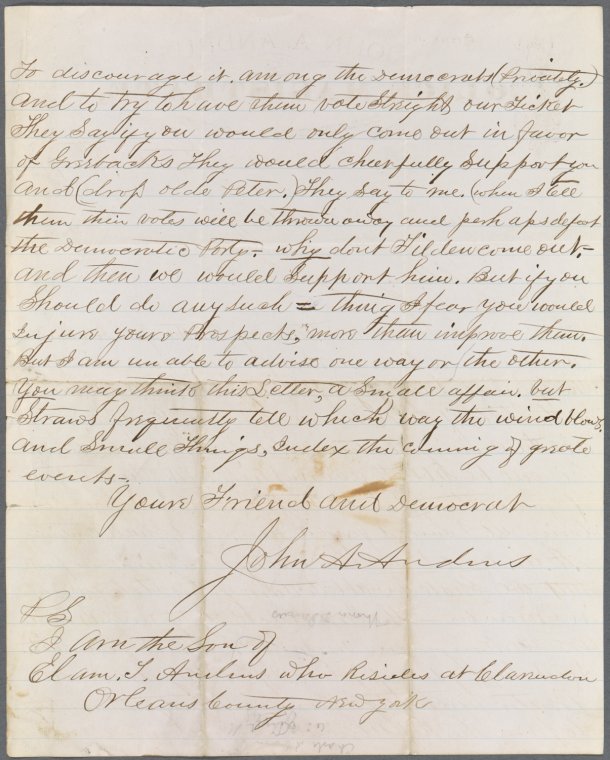 To discourage it. among the Democrats (Privately.)
and to try to have them vote Streight our Ticket
They Say if you would only come out in favor
of Grinbacks They would cheerfully Support you
and (drop olde Peter.) They Say to me. (when I tell
them their votes will be thrown away and perhaps defeat
the Democratic Party.- why dont Tilden come out-
and then we would Support him. But if you
Should do any such = thing I fear you would
Injure youre Prospects, more than improve them.
But I am unable to advise one way or the other.
You may think this Letter, a Small affair. but
Straws frequently tell which way the wind blows,
and Small Things, Index the coming of greate
events-
Youre Friend and Democrat
John A. Andrus
P S
I am the Son of
Elam. T. Andrus who Risides at Clarendon
Orleans County New York